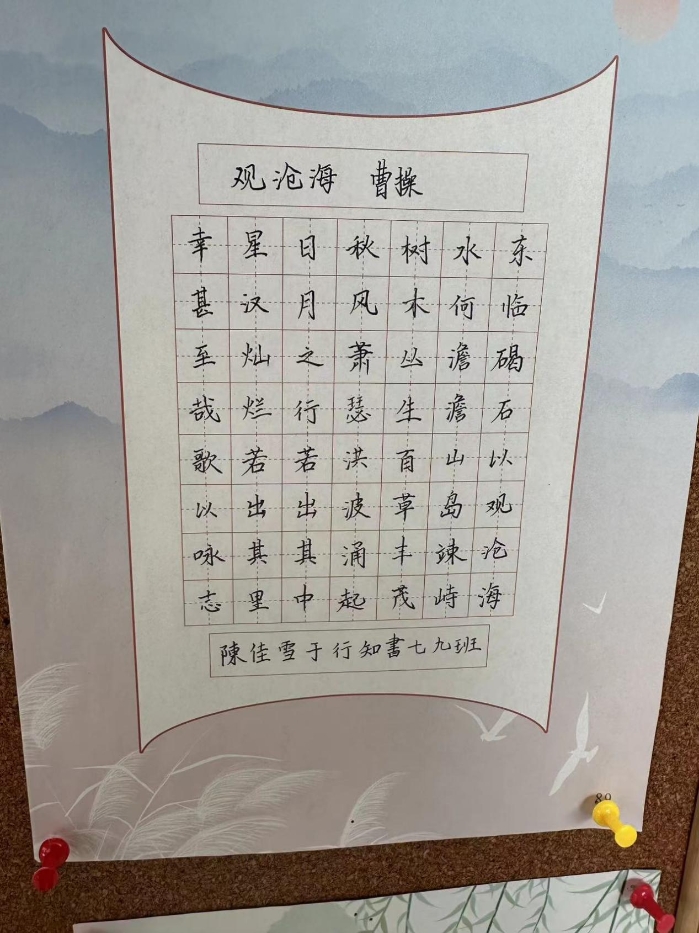 观沧海 曹操
东临碣石以观沧海
水何澹澹山岛竦峙
树木丛生百草丰茂
秋风萧瑟洪波涌起
日月之行若出其中
星汉灿烂若出其里
幸甚至哉歌以咏志
陳佳雪于行知書七九班
89